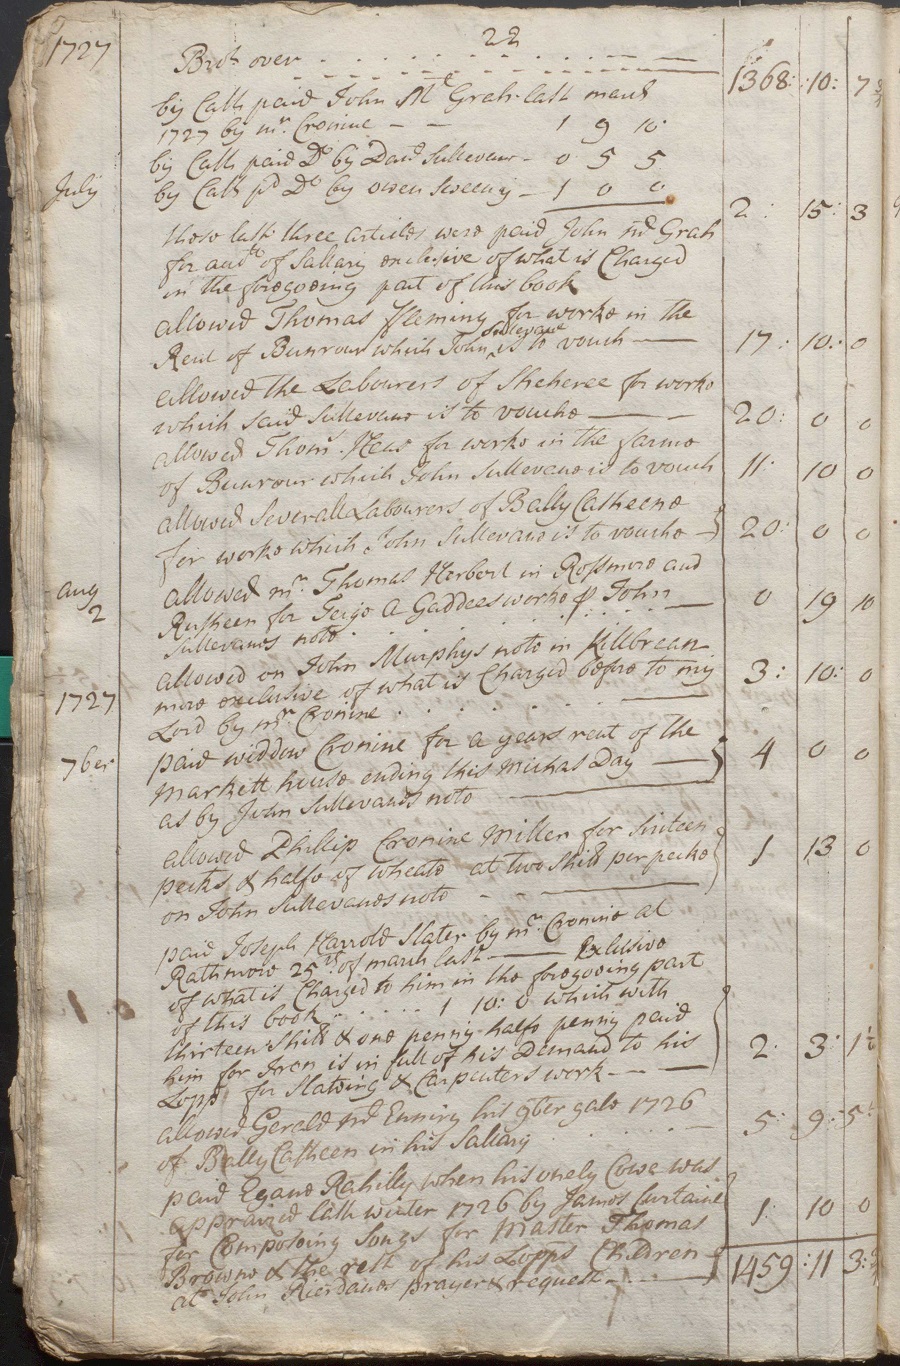 22
1727 Brot over 1368: 10: 7 3/4
by Cash paid John Mc Grah last march
1727 by mr. Cronine - - 1 9 10
by Cash paid Do by Davd Sullevane - 0 5 5
July by Cash pd Do by owen sweeny - 1 0 0 2: 15: 3
those last three articles were paid John Md Grah
for acctt of Sallary exclusive of what is Charged
in the foregoeing part of this book
allowed Thomas Fleming for worke in the
Reut of Bunrour which John Sullevane is to vouch 17: 10: 0
allowed the Labourers of Sheheree for worke
which said Sullevane is to vouche 20: 0 0
allowed Thoms. Heas for worke in the farme
of Bunrour which John Sullevane is to vouch 11: 10 0
allowed Severall Labourers of BallyCasheene
for worke which John Sullevane is to vouche 20: 0 0
aug 2 allowed mr. Thomas Herbert in Rossmore and
Rusheen for Teige A Gaddees worke p John 0 19 10
Sullevanes note
allowed on John Murphys note in Killbrean
1727 more exclusive of what is Charged before to my 3: 10: 0
Lord by mr. Cronine
7ber paid widdow Cronine for a years rent of the
markett house ending this michas Day 4 0 0
as by John Sullevanes note
allowed Phillip Cronine Miller for sixteen
pecks & halfe of wheate at two Shills per pecke 1 13 0
on John Sullevanes note
paid Joseph Harrold Slater by mr. Cronine at
Rathmore 25th of march last Exclusive
of what is Charged to him in the foregoeing part
of this book 1 10: 0 which with
thirteen Shills & one penny halfe penny paid
him for Iron is in full of his Demand to his 2: 3: 1 1/2
Lopp for Slateing & Carpenters work
allowed Gerald Md Eniniry his 9ber gale 1726 5: 9: 5 1/2
of BallyCasheen in his Sallary
paid Egane Rahilly when his onely Cowe was
appraized last winter 1726 by James Curtaine 1 10 0
for Composeing Songs for Master Thomas
Browne & the rest of his Lopps Children 1459: 11 3:
at John Rierdanes prayer & request